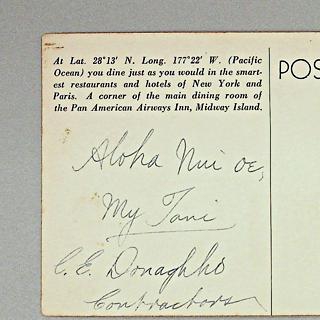 At Lat. 28°13' N. Long. 177°22' W. (Pacific
Ocean) you dine just as you would in the smart-
est restaurants and hotels of New York and
Paris. A corner of the main dining room of
the Pan American Airways Inn, Midway Island.
POS
Aloha Nui oe,
My Tani
C. E. Donaghho
Contractors